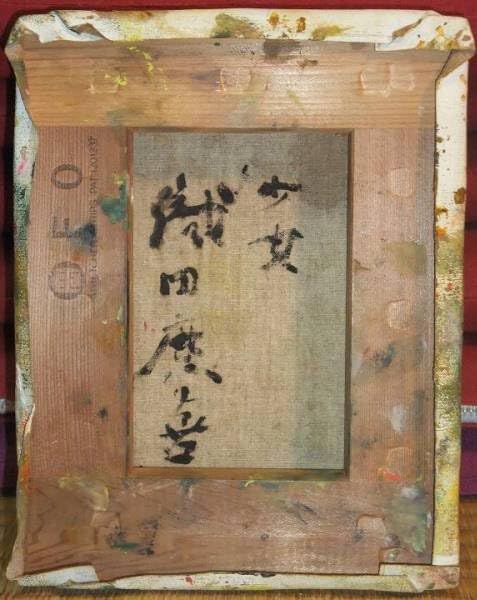 少女
織田廣喜
F 0